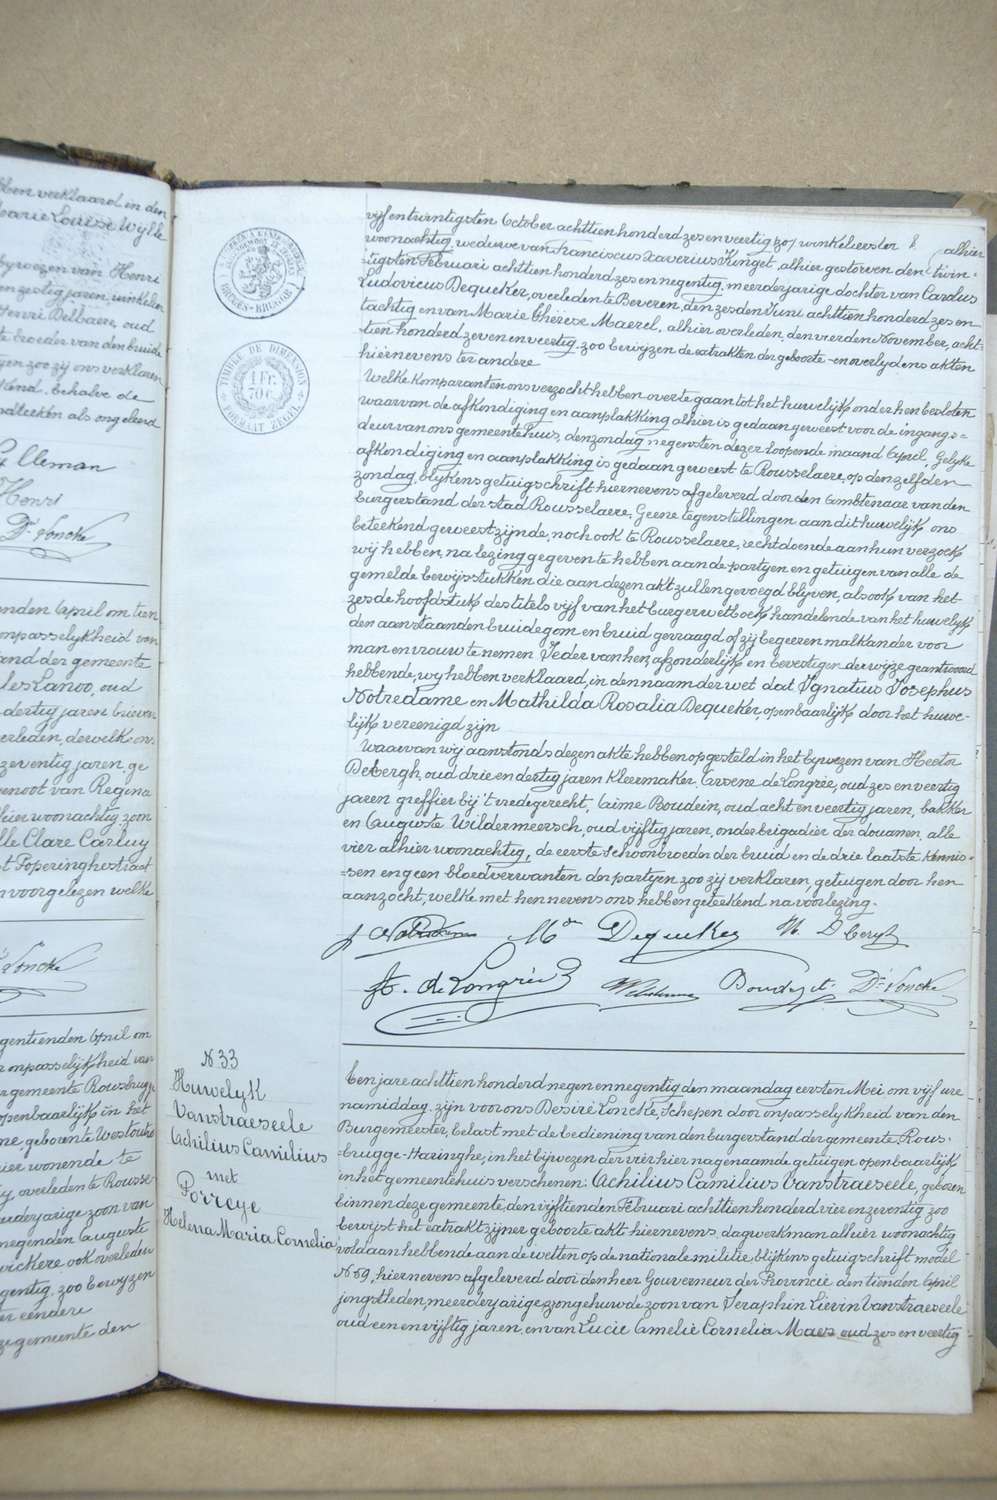 bben verklaard in den
Marie Louise Wylle
bywezen van Henri
en zestig jaren, winkelier
Henri Delbaere, oud
te broeder van den bruide
gen zoo zij ons verklaren
kend, behalve de
nalteeken als ongeleerd
Cleman
Henri
Dr. Loncke
nden April om tien
onpasselykheid van
and der gemeente
les Lanoo, oud
dertig jaren brieven
erleden, derwelke ons
zeventig jaren, ge
genoot van Regina
hier woonachtig, zoon
lle Clare Carluy
t Poperinghestraat
n voorgelezen welke
Loncke
gentienden April om
r onpasselijkheid van
r gemeente Rousbrugge
openbaarlijk in het
ne, geborente Westoutre
ier wonende te
y, overleden te Rousse
eerderjarige zoon van
negenden Auguste
wickere ook overleden
gentig, zoo bewyzen
ter eendere
ze gemeente den
BRUGES-BRUGGE
TIMBRE DE DIMENSION
1 Fr.
70 C.
FORMAAT ZEGEL
vijfentwintigsten October achttien honderd zes en veertig, zoo winkelierster alhier
woonachtig, weduwe van Franciscus Xaverius Kinget, alhier gestorven den twin-
tigsten Februari achttien honderd zes en negentig, meerderjarige dochter van Carolus
Ludovicus Dequeker, overleden te Beveren, den zesden Juni achttien honderd zes en
tachtig en van Marie Thérèse Maerel, alhier overleden, den vierden November, acht-
tien honderd zeven en veertig, zoo bewijzen de extrakten der geboorte- en overlydens akten
hiernevens ter andere
Welke komparanten ons verzocht hebben over te gaan tot het huwelijk onder hen besloten
waarvan de afkondiging en aanplakking alhier is gedaan geweest voor de ingangs=
deur van ons gemeentehuis, den zondag negensten dezer loopende maand April, Gelyke
afkondiging en aanplakking is gedaan geweest te Rousselaere, op den zelfden
zondag, blijkens getuigschrift hiernevens afgeleverd door den ambtenaar van den
burgerstand der stad Rousselaere, Geene tegenstellingen aan dit huwelijk ons
beteekend geweest zijnde, noch ook te Rousselaere, recht doende aan hun verzoek
wij hebben, na lezing gegeven te hebben aan de partyen en getuigen van alle de
gemelde bewijsstukken die aan dezen akt zullen gevoegd blijven, alsook van het
zesde hoofdstuk des titels vijf van het burgerwetboek handelende van het huwelyk
den aanstaanden bruidegom en bruid gevraagd of zij begeeren malkander voor
man en vrouw te nemen Ieder van hen, afzonderlijk en bevestigen der wijze geantwoord
hebbende, wy hebben verklaard, in den naam der wet dat Ignatius Josephus
Notredame en Mathilda Rosalia Dequeker, openbaarlijk door het huwe-
lijk vereenigd zijn
Waarvan wij aanstonds dezen akte hebben opgesteld in het bywezen van Hector
Debergh, oud drie en dertig jaren kleermaker, Arsene de Longrée, oud zes en veertig
jaren greffier bij 't vredegerecht, Aimé Boudein, oud acht en veertig jaren, bakker
en Auguste Wildermeersch, oud vijftig jaren, onderbrigadier der douanen, alle
vier alhier woonachtig, de eerste schoonbroeder der bruid en de drie laatste kennis-
-sen en geen bloedverwanten der partyen zoo zij verklaren, getuigen door hen
aanzocht, welke met hen nevens ons hebben geteekend na voorlezing.
J Notredame Mda Dequeker H. Debergh
A. de Longrée Dr. Loncke
N. 33
Huwelyk
Vanstraeseele
Achilius Camilius
met
Porreye
Helena Maria Cornelia
Een jare achttien honderd negen en negentig den maandag eersten Mei om vijf ure
namiddag, zijn voor ons Desiré Loncke, Schepen door onpasselykheid van den
Burgemeester, belast met de bediening van den burgerstand der gemeente, Rous-
-brugge-Haringhe, in het bijwezen der vier hier nagenaamde getuigen openbaarlijk
in het gemeentehuis verschenen: Achilius Camilius Vanstraeseele, geboren
binnen deze gemeente, den vijftienden Februari achttien honderd vier en zeventig, zoo
bewijst het extrakt zijner geboorte akt hiernevens, dagwerkman alhier woonachtig
voldaan hebbende aan de wetten op de nationale militie, blijkens getuigschrift model
N. 59, hiernevens afgeleverd door den heer Gouverneur der Provincie den tienden April
jongstleden, meerderjarige ongehuwde zoon van Seraphin Lievin Vanstraeseele
oud een en vijftig jaren, en van Lucie Amelie Cornelia Maes, oud zes en veertig